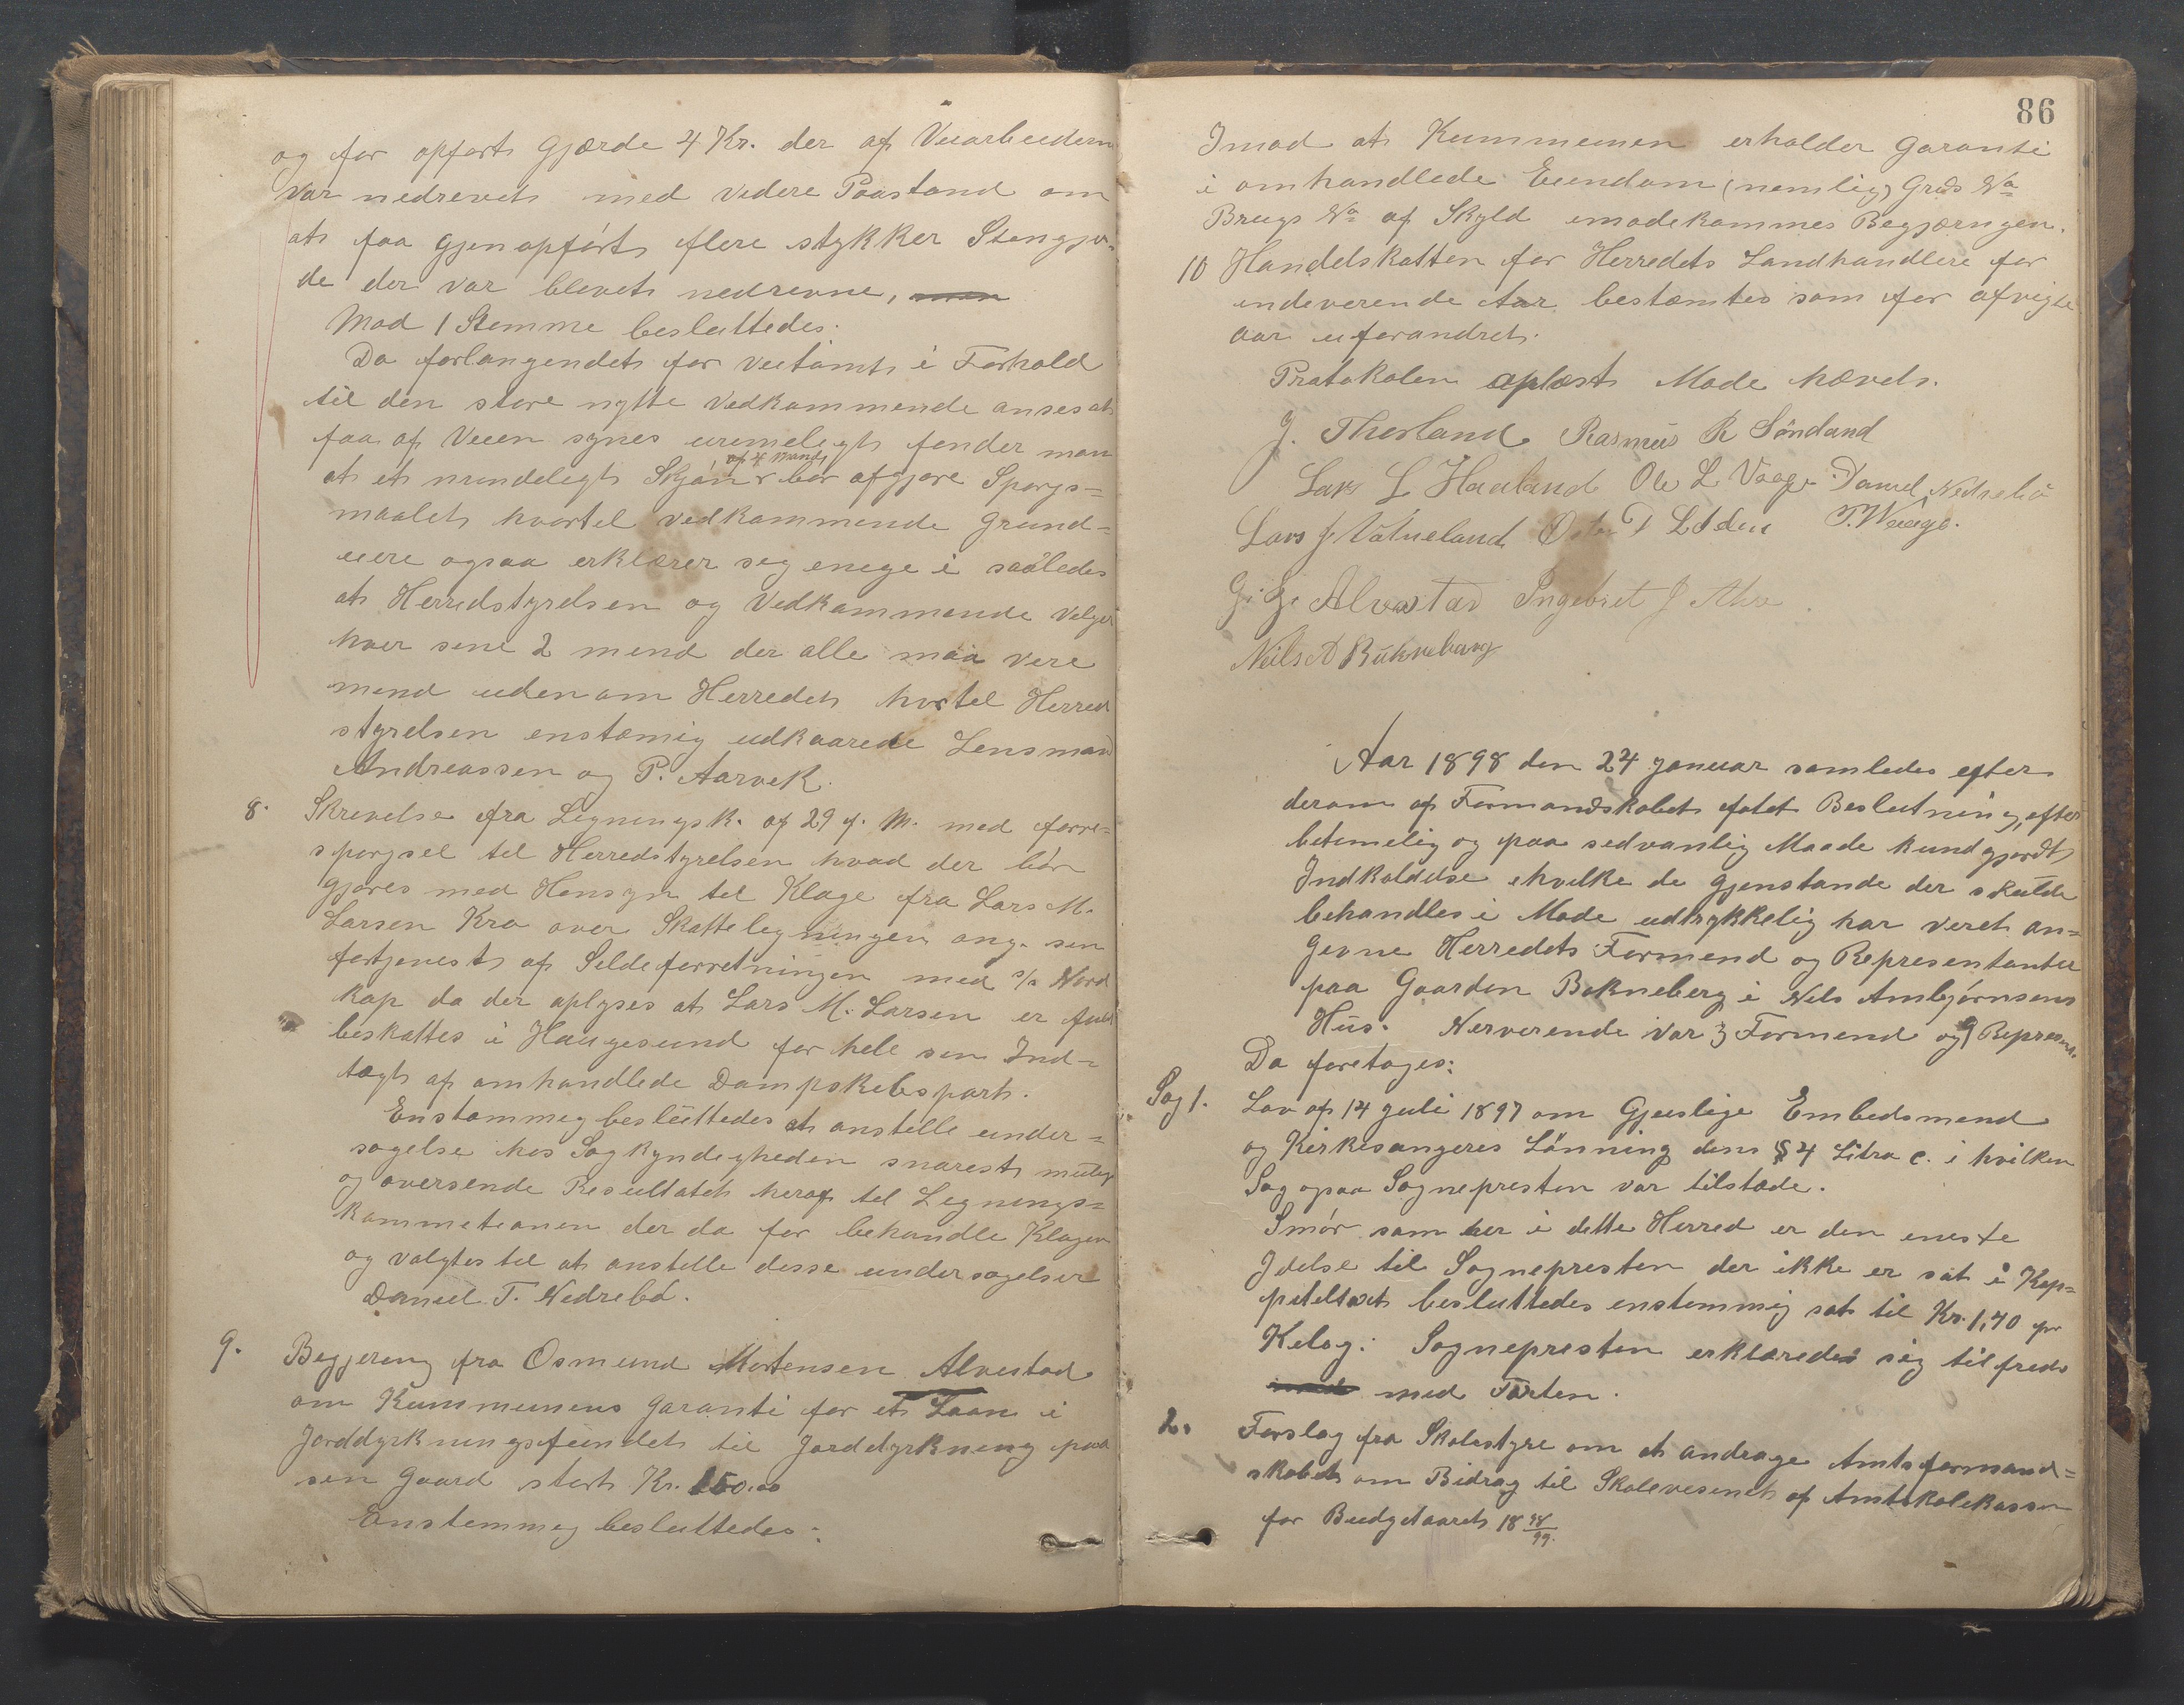 og for opført Gjærde 4 Kr. der af Veiarbeidern
var nedrevet med videre Paastand om
at faa gjenopført flere stykker Stengjer-
de der var blevet nedrevne, men
Mod 1 Stemme besluttedes:
Da forlangendet for Veitomt i Forhold
til den store nytte Vedkommende anses at
faa af Veien synes urimeligt finder man
at et mindeligt Skjøn af 4 mænd bør afgjøre Spørgs=
maalet hvortil vedkommende Grund=
eiere ogsaa erklærer sig enige i saaledes
at Herredstyrelsen og Vedkommende Velger
hver sine 2 mend der alle maa vere
mend udenom Herredet hvortil Herred
styrelsen enstemig udkaarede Lensmand
Andreassen og P. Aarvik.
8. Skrivelse fra Ligningsk. af 29 f. M. med forre=
spørgsel til Herredstyrelsen hvad der bør
gjøres med Hensyn til Klage fra Lars M.
Larsen Kro over Skatteligningen ang. sin
fortjeneste af Sildeforretningen med s/s Nord
kap da der oplyses at Lars M. Larsen er fuldt
beskattes i Haugesund for hele sin Ind=
tægt af omhandlede Dampskibspart.
Enstemmig besluttedes at anstille under=
søgelse hos Sagkyndigheden snarest mulig
og oversende Resultatet heraf til Lignings=
kommitionen der da for behandle Klagen
og valgtes til at anstille disse undersøgelser
Daniel T. Nedrebø.
9. Begjering fra Osmund Mortensen Alvestad
om Kummunens Garanti for et Laan i
Jorddyrkningsfundet til Jorddyrkning paa
sin Gaard stort Kr. 150.00
Enstemmig besluttedes:
86
Imod at Kummunen erholder Garanti
i omhandlede Eiendom (nemlig) Grds No
Brugs No af Skyld imødekommes Begjæringen.
10 Handelskatten for Herredets Landhandlere for
indeverende Aar bestemtes som for afvigte
aar uforandret.
Protokolen oplæst Møde hævet.
J. Thorland Rasmus R Søndand
Lars L Haaland Ole L Vaage Daniel Nedrebø
Lars J Vatneland D Lsden T. Waage.
G. G. Alvestad Ingebret J
Nils A Bukneberg
Aar 1898 den 24 Januar samledes efter
derom af Formandskabet fatet Beslutning, efter
betimelig og paa sedvanlig Maade kundgjordt
Indkaldelse, hvilke de Gjenstande der skulde
behandles i Møde udtrykkelig har veret an=
givne Herredets Formend og Representanter
paa Gaarden Bokneberg i Nils Ambjørnsens
Hus. Nerverende var 3 Formend og 9 Represent.
Da foretoges:
Sag 1. Lov af 14 Juli 1897 om Gjeislige Embedsmend
og Kirkesangeres Lønning dens § 4 Litra c. i hvilken
Sag ogsaa Sognepresten var tilstæde.
Smør som her i dette Herred er den eneste
Idelse til Sognepresten der ikke er sat i Kap=
piteltaxt besluttedes enstemmig sat til Kr. 1,40 pr
Kilog: Sognepresten erklæredes sig tilfreds
med Taxten.
2. Forslag fra Skolestyre om at andrage Amtsformand=
skabet om Bidrag til Skolevesenet af Amtskolekassen
for Budgetaaret 18 98/99.